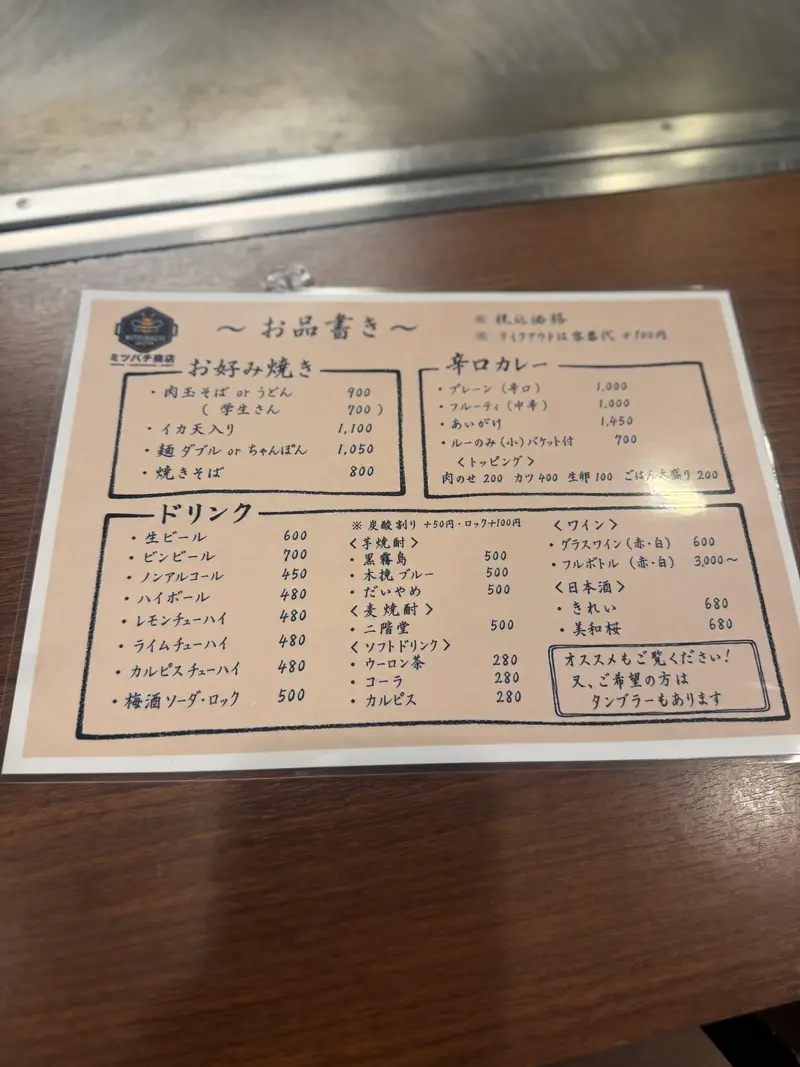 ミツバチ商店
～ お品書き ～
※ 税込価格
※ テイクアウトは容器代 +100円
お好み焼き
・肉玉そば or うどん 900
( 学生さん 700 )
・イカ天入り 1,100
・麺ダブル or ちゃんぽん 1,050
・焼きそば 800
辛口カレー
・プレーン (辛口) 1,000
・フルーティ (中辛) 1,000
・あいがけ 1,450
・ルーのみ (小) バケット付 700
〈トッピング〉
肉のせ 200 カツ 400 生卵 100 ごはん大盛り 200
ドリンク
・生ビール 600
・ビンビール 700
・ノンアルコール 450
・ハイボール 480
・レモンチューハイ 480
・ライムチューハイ 480
・カルピスチューハイ 480
・梅酒ソーダ・ロック 500
※ 炭酸割り +50円・ロック+100円
〈芋焼酎〉
・黒霧島 500
・木挽ブルー 500
・だいやめ 500
〈麦焼酎〉
・二階堂 500
〈ソフトドリンク〉
・ウーロン茶 280
・コーラ 280
・カルピス 280
〈ワイン〉
・グラスワイン (赤・白) 600
・フルボトル (赤・白) 3,000～
〈日本酒〉
・きれい 680
・美和桜 680
オススメもご覧ください!
又、ご希望の方は
タンブラーもあります